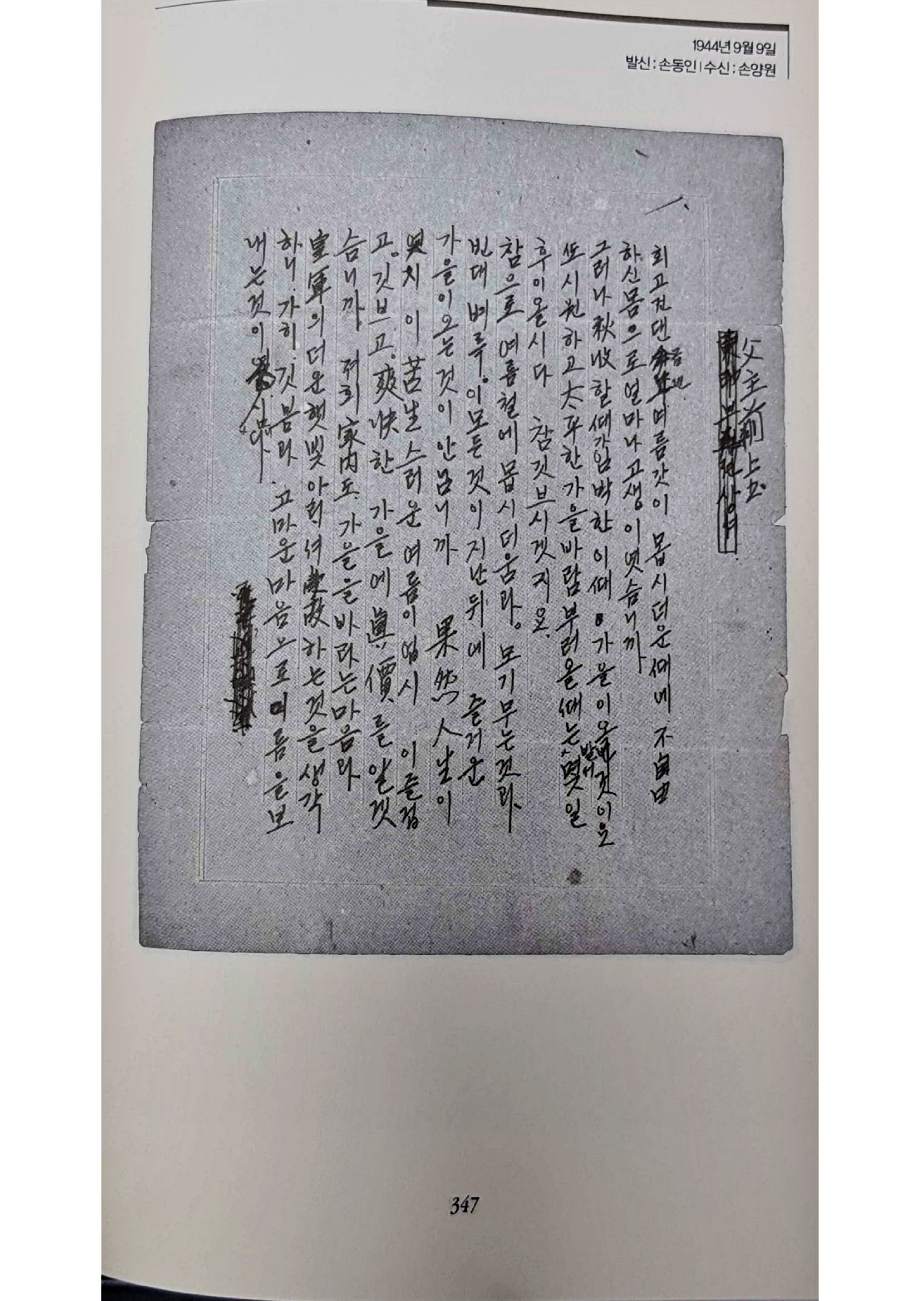 1944년 9월 9일
발신 : 손동인 | 수신 : 손양원
父主前 上书
회고컨댄 금번 여름갓이 몹시 더운때에 不自由
하신몸으로 얼마나 고생이엿슴니까
그러나 秋收할때 각가이 임박한 이때 가을이 올 것이오
또 시원하고 太平한 가을바람 부러올때는 발서 몇일
후이올시다 참깃브시겟지요.
참으로 여름철에 몹시더움과, 모기무는것과,
빈대 벼루, 이모든것이 지난뒤에 즐거운
가을이오는것이 안님니까 果然 人生이
이 苦生스러운 여름이 업시 이즐겁
고, 깃브고, 爽快한 가을에 眞價를 알겟
슴니까, 저희 家內도 가을을 바라는마음과
皇軍의 더운햇빛 아희셔 하는것을 생각
하니, 가히 깃봄과, 고마운마음으로 여름을보
내는것이 올시다.
347